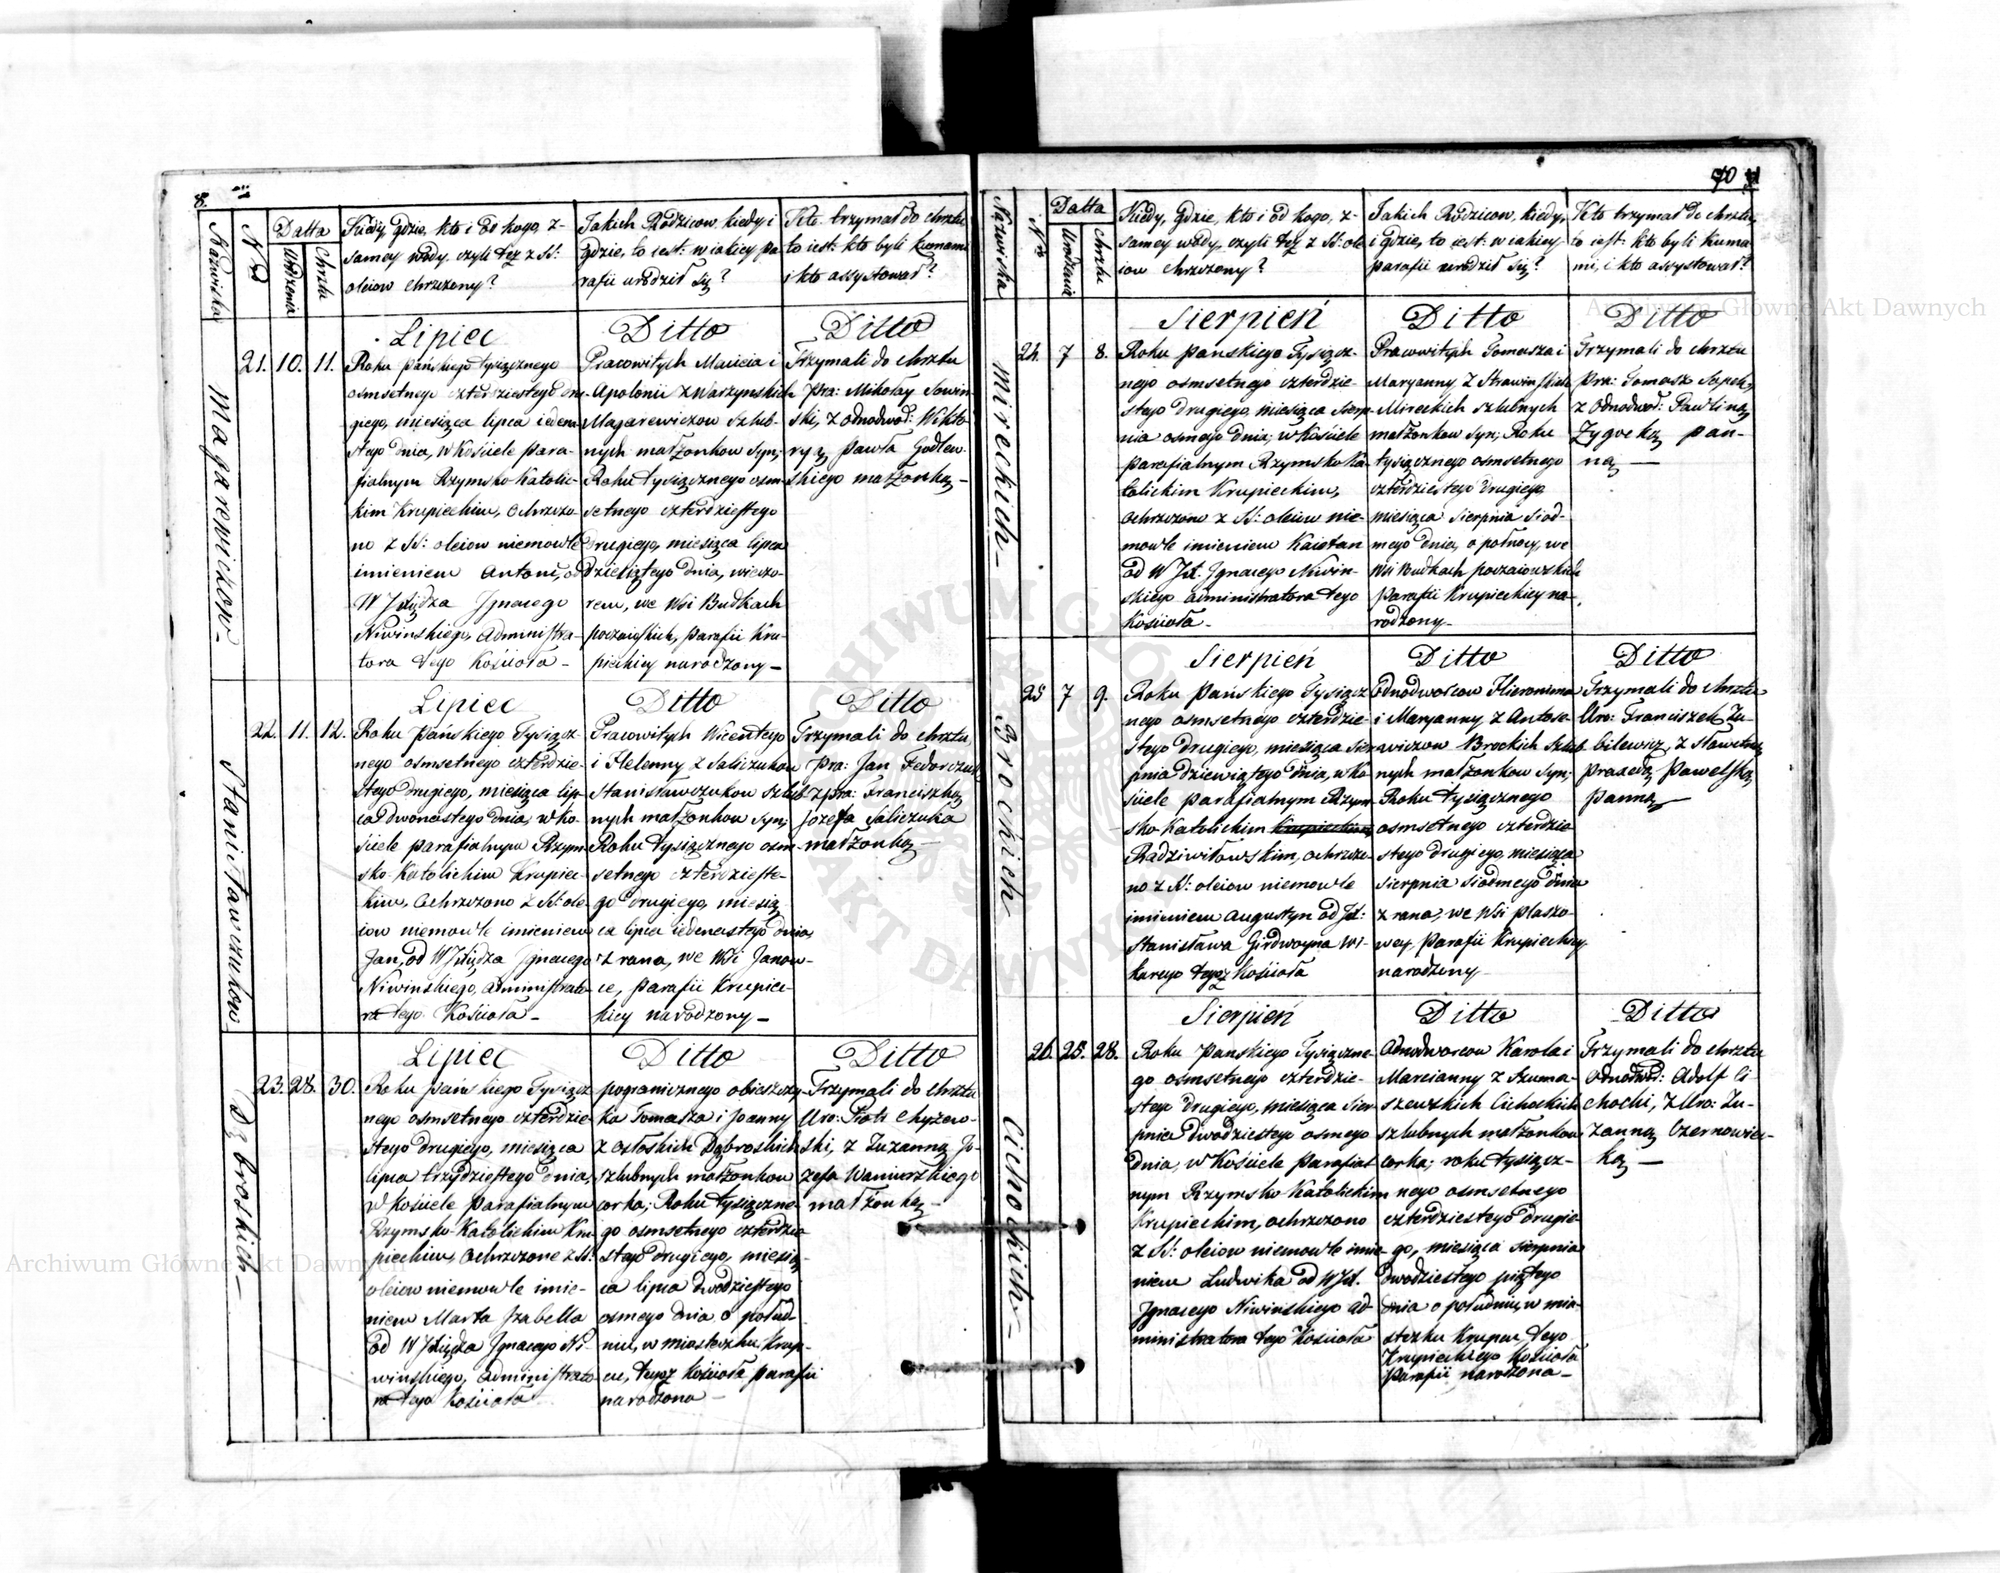 8.
Nazwiska
Nro
Datta
Urodzenia
Chrztu
Kiedy, gdzie, kto i od kogo, z-
samey wody, czyli też z SS:
oleiow chrzczony?
Jakich Rodzicow, kiedy i
gdzie, to iest: w iakiey pa-
rafii urodził się?
Kto trzymał do chrztu,
to iest: kto byli kumami
i kto assystował?
Magarewiczow
21. 10. 11.
Lipiec
Roku Pańskiego tysiącznego
osmsetnego czterdziestego dru-
giego, miesiąca lipca iedena-
stego dnia, w Kościele Para-
fialnym Rzymsko-Katolic-
kim Krupieckim, ochrzczo-
no z SS: oleiow niemowle
imieniem Antoni, od
W Jxiędza Ignacego
Niwinskiego, Administra-
tora tego Kościoła -
Ditto
Pracowitych Macieia i
Apolonii z Warzynskich
Magarewiczow szlub-
nych małżonkow syn;
Roku tysiącznego osm-
setnego czterdziestego
drugiego, miesiąca lipca
dziesiątego dnia, wieczo-
rem, we Wsi Budkach
poczaioskich, parafii Kru-
pieckiey narodzony -
Ditto
Trzymali do chrztu
Pra: Mikołay Sowin-
ski, z odnodwor: Wikto-
ryą Pawła Godlew-
skiego małżonką -
Stanisławczukow
22. 11. 12.
Lipiec
Roku Pańskiego Tysiącz-
nego osmsetnego czterdzie-
stego drugiego, miesiąca lip-
ca dwonastego dnia, w Ko-
ściele parafialnym Rzym-
sko-Katolickim Krupiec-
kim, ochrzczono z SS: ole-
iow niemowle imieniem
Jan, od W Jxiędza Ignacego
Niwinskiego, Administrato-
ra tego Kościoła -
Ditto
Pracowitych Wicentego
i Helenny z Saliczukow
Stanisławczukow szlub-
nych małżonkow syn;
Roku tysiącznego osm-
setnego czterdzieste-
go drugiego, miesią-
ca lipca iedenastego dnia
z rana, we Wsi Janow-
ce, parafii Krupiec-
kiey narodzony -
Ditto
Trzymali do chrztu
Pra: Jan Fedorczuk
z Pra: Franciszką
Jozefa Saliczuka
małżonką -
Dąbroskich -
23. 28. 30.
Lipiec
Roku Pańskiego Tysiącz-
nego osmsetnego czterdzie-
stego drugiego, miesiąca
lipca trzydziestego dnia,
w Kościele Parafialnym
Rzymsko-Katolickim Kru-
pieckim, ochrzczone z SS:
oleiow niemowle imie-
niem Marta Izabella
od W Jxiędza Ignacego Ni-
winskiego, Administrato-
ra tego Kościoła
Ditto
pogranicznego obieszczy-
ka Tomasza i Joanny
z Osłoskich Dąbroskich
szlubnych małżonkow
corka; Roku tysiączne-
go osmsetnego czterdzie-
stego drugiego, miesią-
ca lipca dwodziestego
osmego dnia o połud-
niu, w miasteczku Krup-
cu, tegoż Kościoła parafii
narodzona -
Ditto
Trzymali do chrztu
Uro: Piotr Chyżew-
ski, z Zuzanną Jo-
zefa Waniurskiego
małżonką -
70
Nazwiska
Nro
Datta
Urodzenia
Chrztu
Kiedy, gdzie, kto i od kogo, z-
samey wody, czyli też z SS: ole-
iow chrzczony?
Jakich Rodzicow, kiedy,
i gdzie, to iest: w iakiey
parafii urodził się?
Kto trzymał do chrztu,
to iest: kto byli kuma-
mi, i kto assystował?
Mireckich -
24 7 8.
Sierpień
Roku Pańskiego Tysiącz-
nego osmsetnego czterdzie-
stego drugiego, miesiąca sierp-
nia osmego dnia, w Kościele
parafialnym Rzymsko Ka-
tolickim Krupieckim,
ochrzczono z SS: oleiow nie-
mowle imieniem Kaietan
od W Jx. Ignacego Niwin-
skiego administratora tego
Kościoła -
Ditto
Pracowitych Tomasza i
Maryanny z Strawinskich
Mireckich szlubnych
małżonkow syn; Roku
tysiącznego osmsetnego
czterdziestego drugiego
miesiąca sierpnia siod-
mego dnia, o połnocy, we
Wsi Budkach poczaiowskich
Parafii Krupieckiey na-
rodzony -
Ditto
Trzymali do chrztu
Pra: Tomasz Sapek,
z odnodwor: Pawliną
Zygocką pan-
ną -
Brockich
25 7 9.
Sierpień
Roku Pańskiego Tysiącz-
nego osmsetnego czterdzie-
stego drugiego, miesiąca sier-
pnia dziewiątego dnia, w Ko-
ściele parafialnym Rzym-
sko Katolickim Krupieckim
Radziwiłowskim, ochrzczo-
no z SS: oleiow niemowle
imieniem Augustyn od Jx:
Stanisława Girdwoyna Wi-
karego tegoż Kościoła
Ditto
Odnodworcow Hieronima
i Maryanny z Antose-
wiczow Brockich szlub-
nych małżonkow syn;
Roku tysiącznego
osmsetnego czterdzie-
stego drugiego, miesiąca
sierpnia siodmego dnia
z rana, we Wsi Płaszo-
wey, Parafii Krupieckiey
narodzony -
Ditto
Trzymali do chrztu
Uro: Franciszek Zu-
bilewicz, z sławetną
Praxedą Pawelską
Panną -
Cichockich -
26. 25. 28.
Sierpień
Roku Pańskiego Tysiączne-
go osmsetnego czterdzie-
stego drugiego, miesiąca sier-
pnia dwodziestego osmego
dnia, w Kościele parafial-
nym Rzymsko Katolickim
Krupieckim, ochrzczono
z SS: oleiow niemowle imie-
niem Ludwika od W Jx.
Ignacego Niwinskiego ad-
ministratora tego Kościoła
Ditto
Odnodworcow Karola i
Marcianny z Szuma-
szewskich Cichockich
szlubnych małżonkow
corka; roku tysiącz-
nego osmsetnego
czterdziestego drugie-
go, miesiąca sierpnia
dwodziestego piątego
dnia o południu, w mia-
steczku Krupcu, tego
Krupieckiego Kościoła
Parafii narodzona -
Ditto
Trzymali do chrztu
Odnodwd: Adolf Ci-
chocki, z Uro: Zu-
zanną Czernowiec-
ką -
Archiwum Główne Akt Dawnych
Archiwum Główne Akt Dawnych
ARCHIWUM GŁÓWNE AKT DAWNYCH